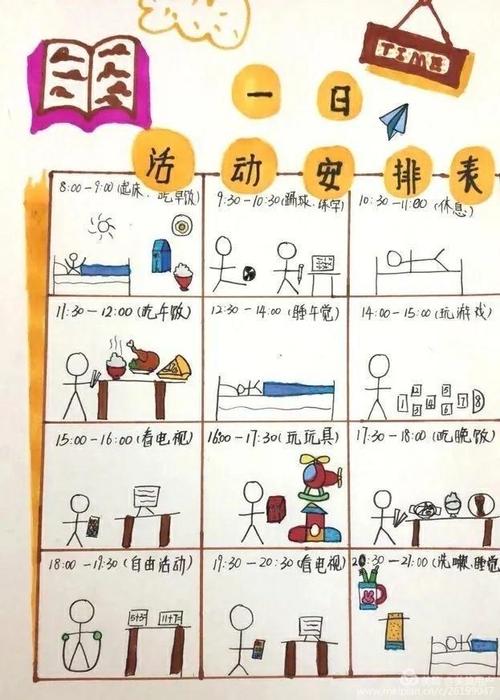 TIME
一日
活动安排表
8:00-9:00(起床、吃早饭)
9:30-10:30(踢球、练字)
10:30-11:00(休息)
11:30-12:00(吃午饭)
12:30-14:00(睡午觉)
14:00-15:00(玩游戏)
1 2 3 4 5 6 7 8
15:00-16:00(看电视)
16:00-17:30(玩玩具)
17:30-18:00(吃晚饭)
18:00-19:30(自由活动)
19:30-20:30(看电视)
20:30-21:00(洗漱、睡觉)